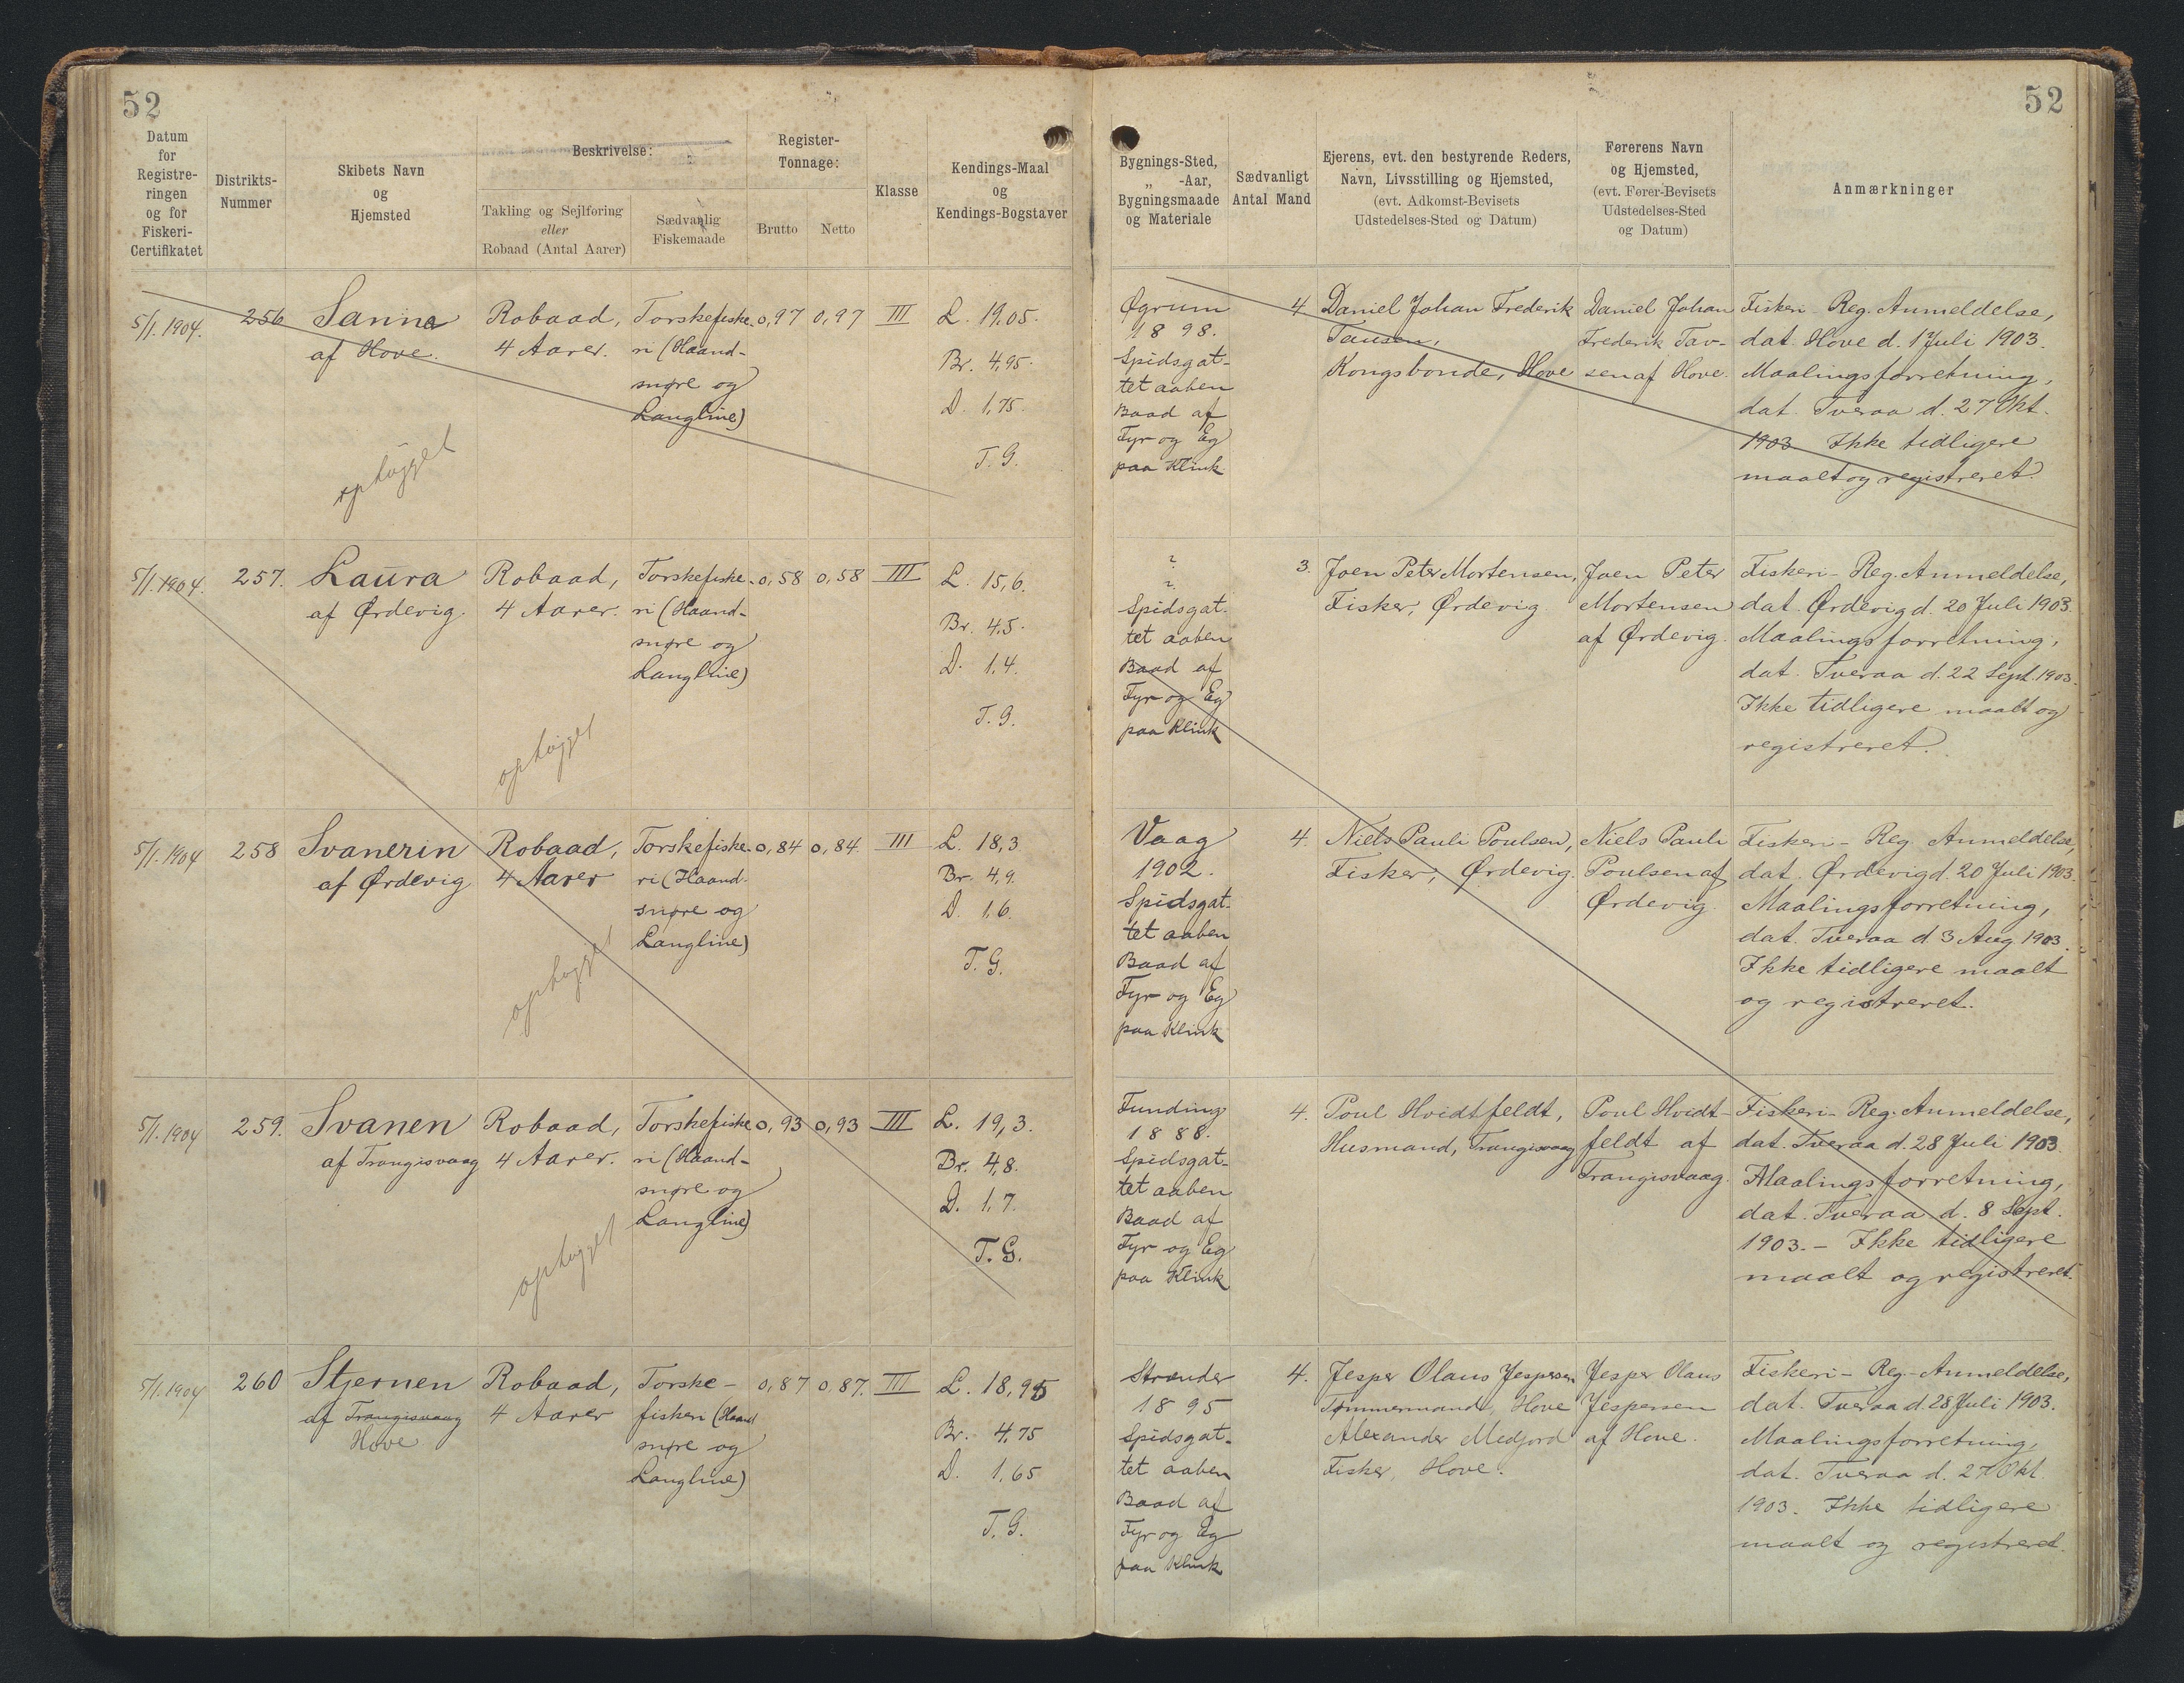 52
52
Datum
for
Registre-
ringen
og for
Fiskeri-
Certifikatet
Distrikts-
Nummer
Skibets Navn
og
Hjemsted
Beskrivelse:
Takling og Sejlføring
eller
Robaad (Antal Aarer)
Sædvanlig
Fiskemaade
Register-
Tonnage:
Brutto
Netto
Klasse
Kendings-Maal
og
Kendings-Bogstaver
Bygnings-Sted,
„ -Aar,
Bygningsmaade
og Materiale
Sædvanligt
Antal Mand
Ejerens, evt. den bestyrende Reders,
Navn, Livsstilling og Hjemsted,
(evt. Adkomst-Bevisets
Udstedelses-Sted og Datum)
Førerens Navn
og Hjemsted,
(evt. Fører-Bevisets
Udstedelses-Sted
og Datum)
Anmærkninger
5/1. 1904.
256
Sanna
af Hove.
ophugget
Robaad,
4 Aarer.
Torskefiske-
ri (Haand-
snøre og
Langline)
0,97
0,97
III
L. 19.05.
Br. 4,95.
D. 1,75.
T.G.
Øgrum
1898.
Spidsgat-
tet aaben
Baad af
Fyr og Eg
paa Klink
4
Daniel Johan Frederik
Tausen,
Kongsbonde, Hove
Daniel Johan
Frederik Tav-
sen af Hove.
Fiskeri-Reg. Anmeldelse,
dat. Hove d. 1 Juli 1903.
Maalingsforretning,
dat. Tveraa d. 27 Okt.
1903 Ikke tidligere
maalt og registreret.
5/1. 1904.
257.
Laura
af Ørdevig.
ophugget
Robaad,
4 Aarer.
Torskefiske-
ri (Haand-
snøre og
Langline)
0,58
0,58
III
L. 15,6.
Br. 4,5.
D. 1,4.
T.G.
?
?
Spidsgat-
tet aaben
Baad af
Fyr og Eg
paa Klink
3.
Joen Peter Mortensen,
Fisker, Ørdevig
Joen Peter
Mortensen
af Ørdevig.
Fiskeri-Reg. Anmeldelse,
dat. Ørdevig d. 20 Juli 1903.
Maalingsforretning,
dat. Tveraa d. 22 Sept. 1903.
Ikke tidligere maalt og
registreret.
5/1. 1904
258
Svanerin
af Ørdevig
ophugget
Robaad,
4 Aarer
Torskefiske-
ri (Haand-
snøre og
Langline)
0,84
0,84.
III
L. 18,3
Br. 4,9.
D. 1,6.
T.G.
Vaag
1902.
Spidsgat-
tet aaben
Baad af
Fyr og Eg
paa Klink
4.
Niels Pauli Poulsen,
Fisker, Ørdevig.
Niels Pauli
Poulsen af
Ørdevig
Fiskeri-Reg. Anmeldelse,
dat. Ørdevig d. 20 Juli 1903.
Maalingsforretning,
dat. Tveraa d. 3 Aug. 1903.
Ikke tidligere maalt
og registreret.
5/1. 1904
259.
Svanen
af Trangisvaag
ophugget
Robaad,
4 Aarer.
Torskefiske-
ri (Haand-
snøre og
Langline)
0,93
0,93
III
L. 19,3.
Br. 4,8.
D. 1,7.
T.G.
Funding
1888.
Spidsgat-
tet aaben
Baad af
Fyr og Eg
paa Klink
4.
Poul Hvidtfeldt,
Husmand, Trangisvaag
Poul Hvidt-
feldt af
Trangisvaag.
Fiskeri-Reg. Anmeldelse,
dat. Tveraa d. 28 Juli 1903.
Maalingsforretning,
dat. Tveraa d. 8 Sept.
1903. - Ikke tidligere
maalt og registreret.
5/1. 1904
260
Stjernen
af Trangisvaag
Hove
Robaad,
4 Aarer
Torske-
fiskeri (Haand
snøre og
Langline)
0,87
0,87.
III
L. 18,95
Br. 4,75
D. 1,65
T.G.
Strender
1895
Spidsgat-
tet aaben
Baad af
Fyr og Eg
paa Klink
4.
Jesper Olaus Jespersen
Tømmermand, Hove
Alexander Medjord
Fisker, Hove.
Jesper Olaus
Jespersen
af Hove.
Fiskeri-Reg.-Anmeldelse,
dat. Tveraa d. 28 Juli 1903.
Maalingsforretning,
dat. Tveraa d. 27 Okt.
1903. Ikke tidligere
maalt og registreret.